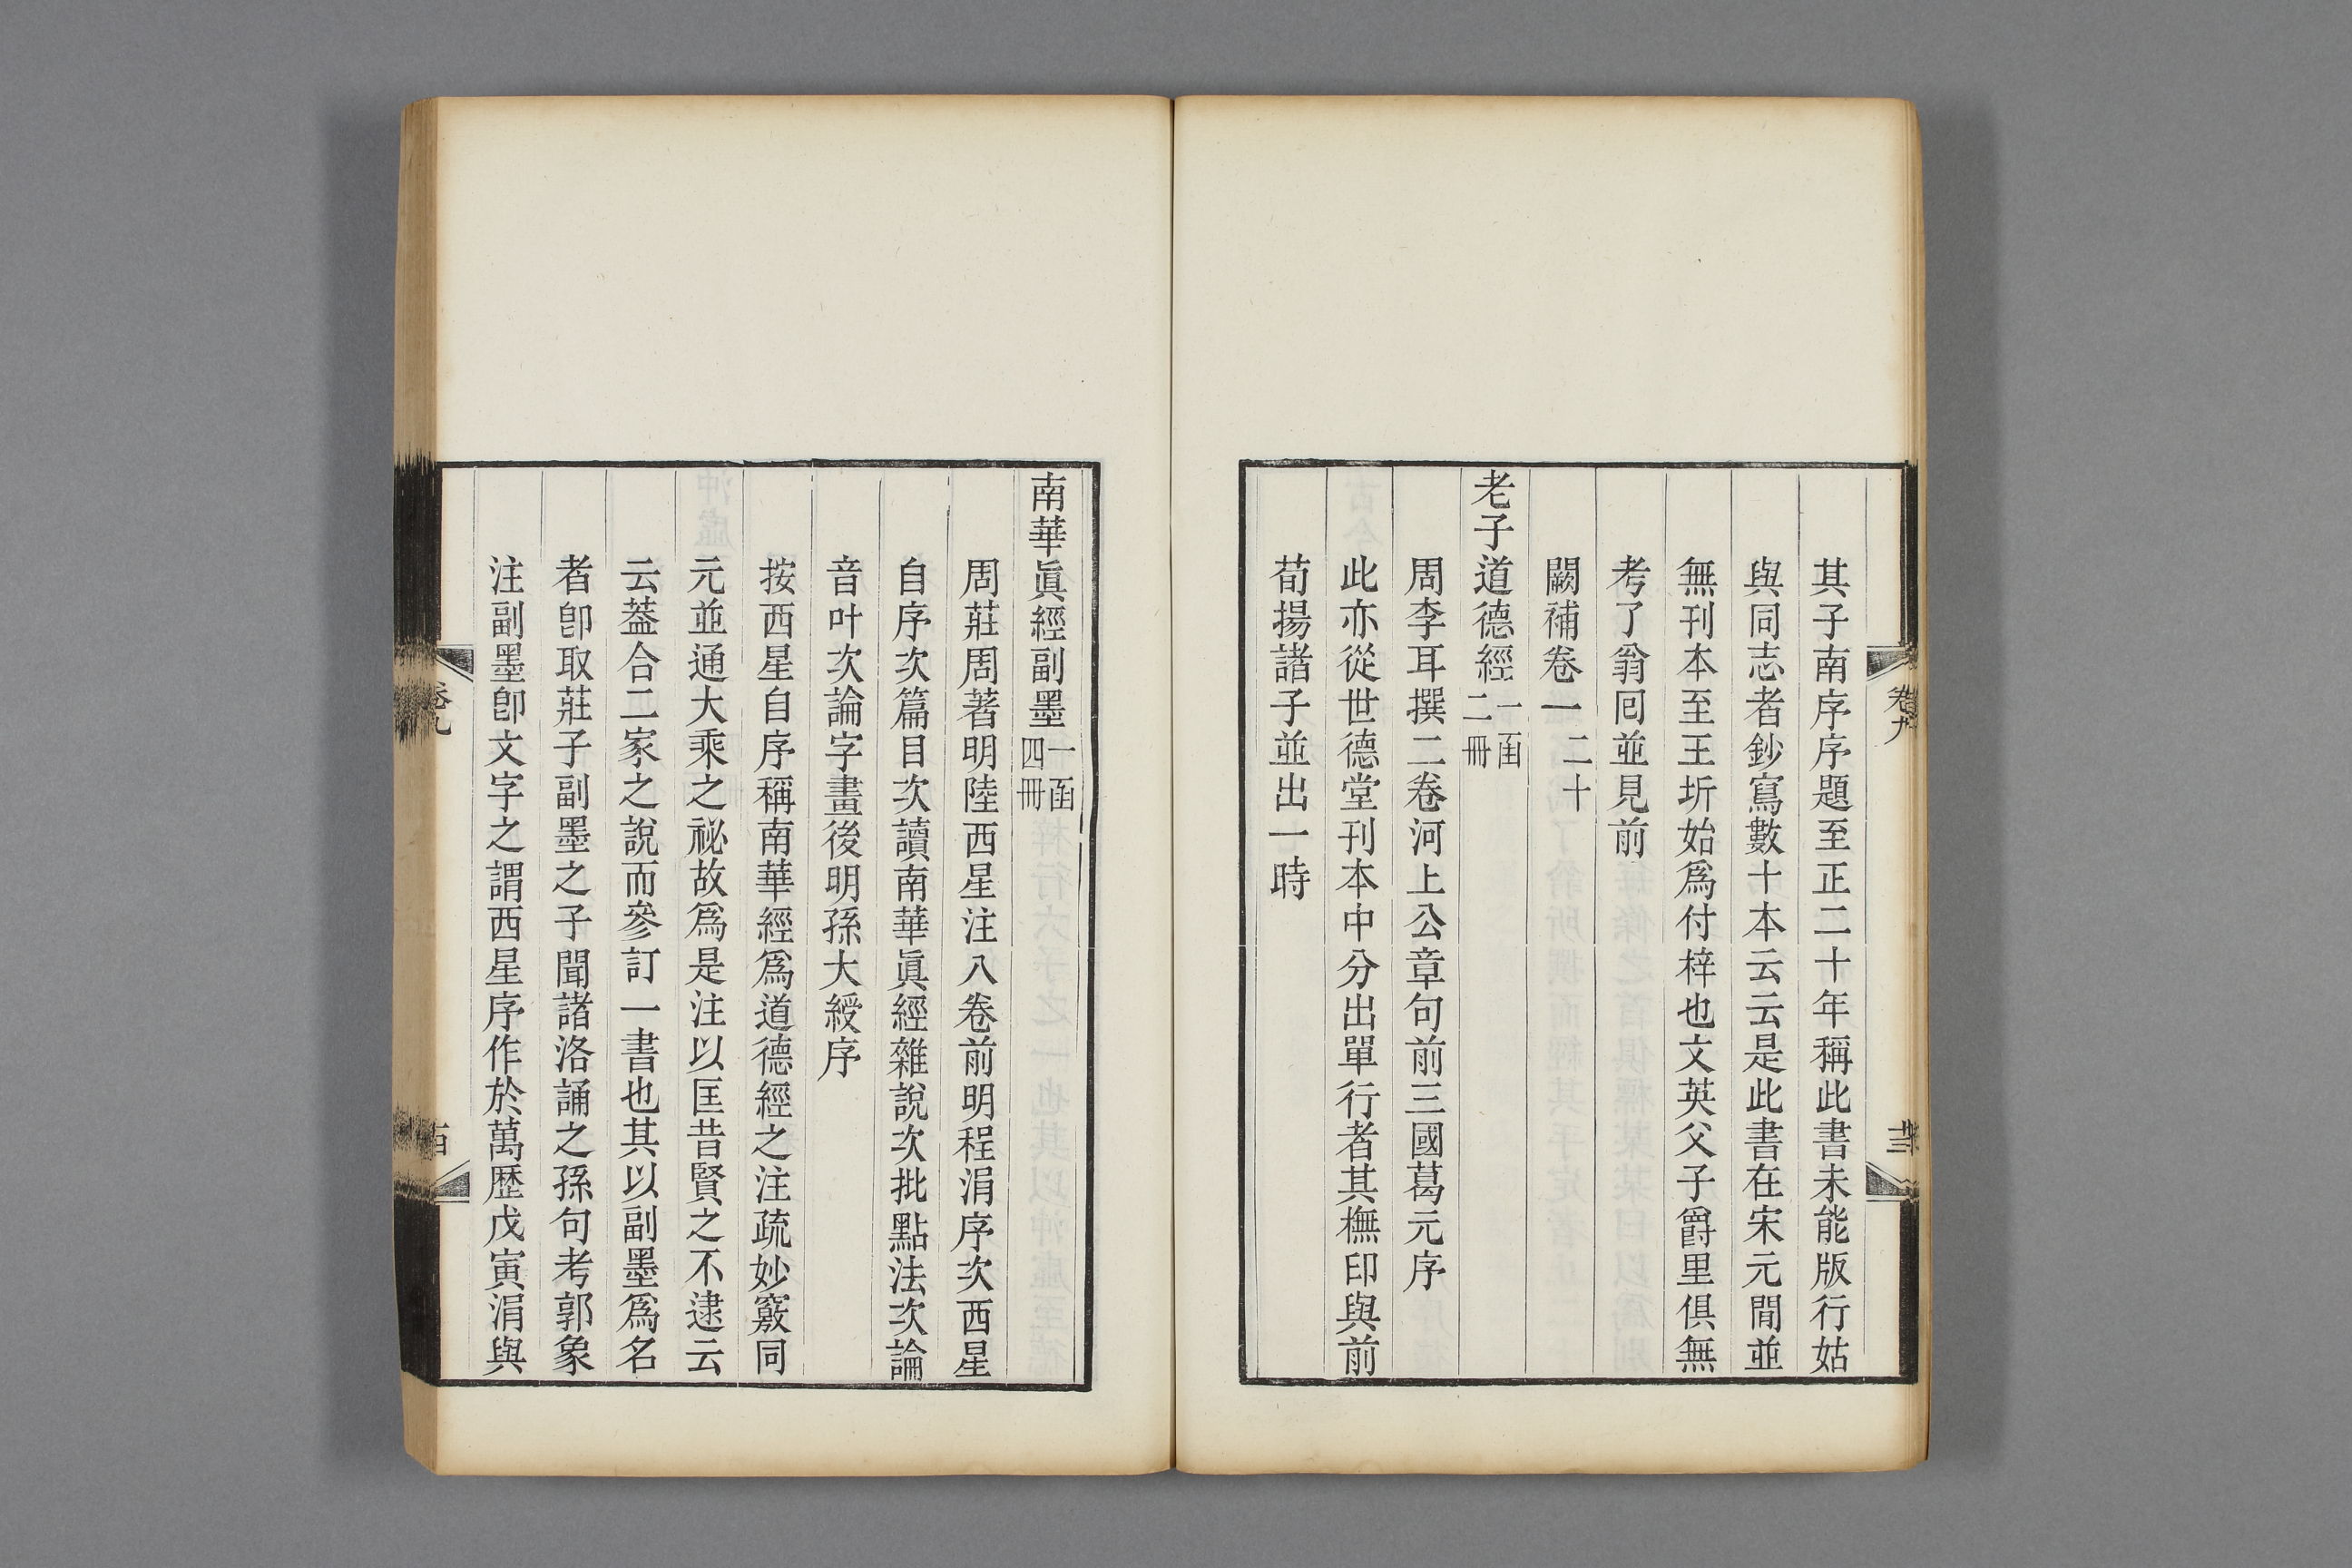 其子南序序題至正二十年稱此書未能版行姑
與同志者鈔寫數十本云云是此書在宋元閒並
無刊本至王圻始爲付梓也文英父子爵里俱無
考了翁囘並見前
闕補卷一 二十
老子道德經一函二冊
周李耳撰二卷河上公章句前三國葛元序
此亦從世德堂刊本中分出單行者其橅印與前
荀揚諸子並出一時
南華眞經副墨一函四冊
周莊周著明陸西星注八卷前明程涓序次西星
自序次篇目次讀南華眞經雜說次批點法次論
音叶次論字畫後明孫大綬序
按西星自序稱南華經爲道德經之注疏妙竅同
元並通大乘之祕故爲是注以匡昔賢之不逮云
云葢合二家之說而參訂一書也其以副墨爲名
者卽取莊子副墨之子聞諸洛誦之孫句考郭象
注副墨卽文字之謂西星序作於萬歷戊寅涓與
卷九